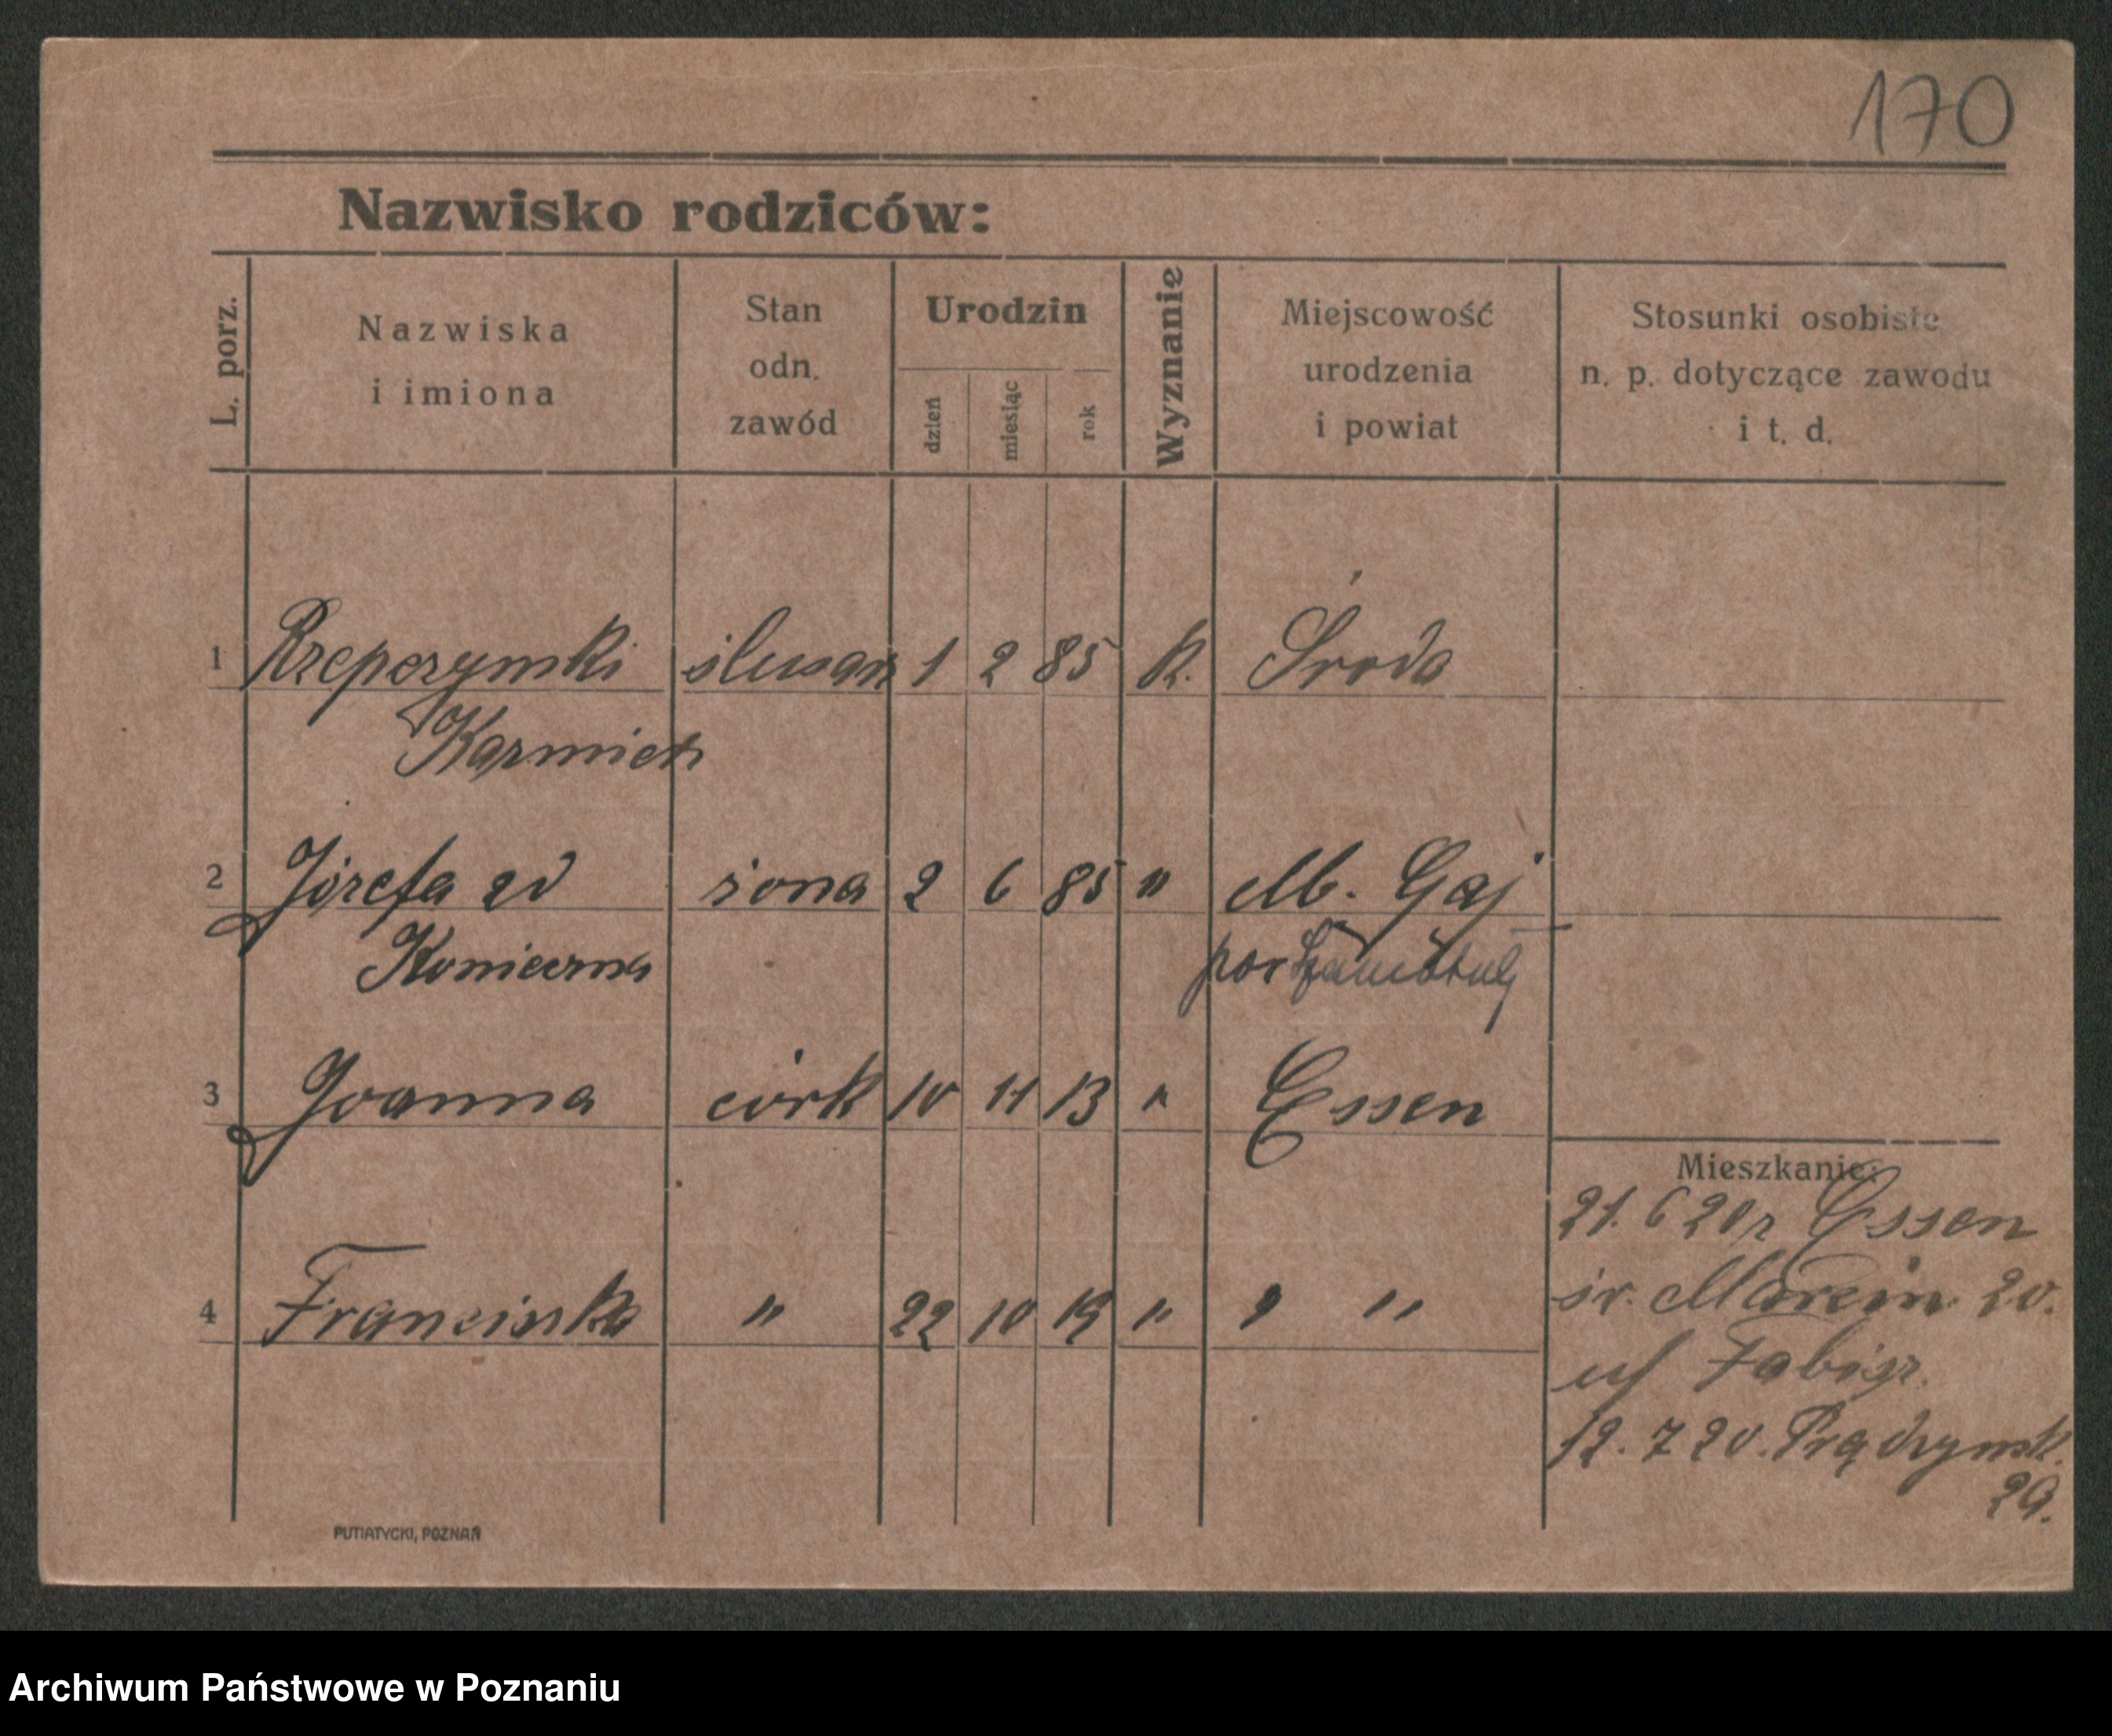 170
Nazwisko rodziców:
L. porz.
Nazwiska
i imiona
Stan
odn.
zawód
Urodzin
dzień
miesiąc
rok
Wyznanie
Miejscowość
urodzenia
i powiat
Stosunki osobiste
n. p. dotyczące zawodu
i t. d.
1 Rzepczynski ślusarz 1 2 85 k. Środa
Kazmierz
2 Józefa zd żona 2 6 85 " Mb. Gaj
Konieczna pow Szamotuły
3 Joanna córk 10 11 13 " Essen
4 Franciszka " 22 10 19 " " "
Mieszkanie:
21. 6 20r Essen
św. Marcin 20.
u/ Fabisz.
12. 7 20. Prądzynsk.
29.
PUTIATYCKI, POZNAŃ
Archiwum Państwowe w Poznaniu